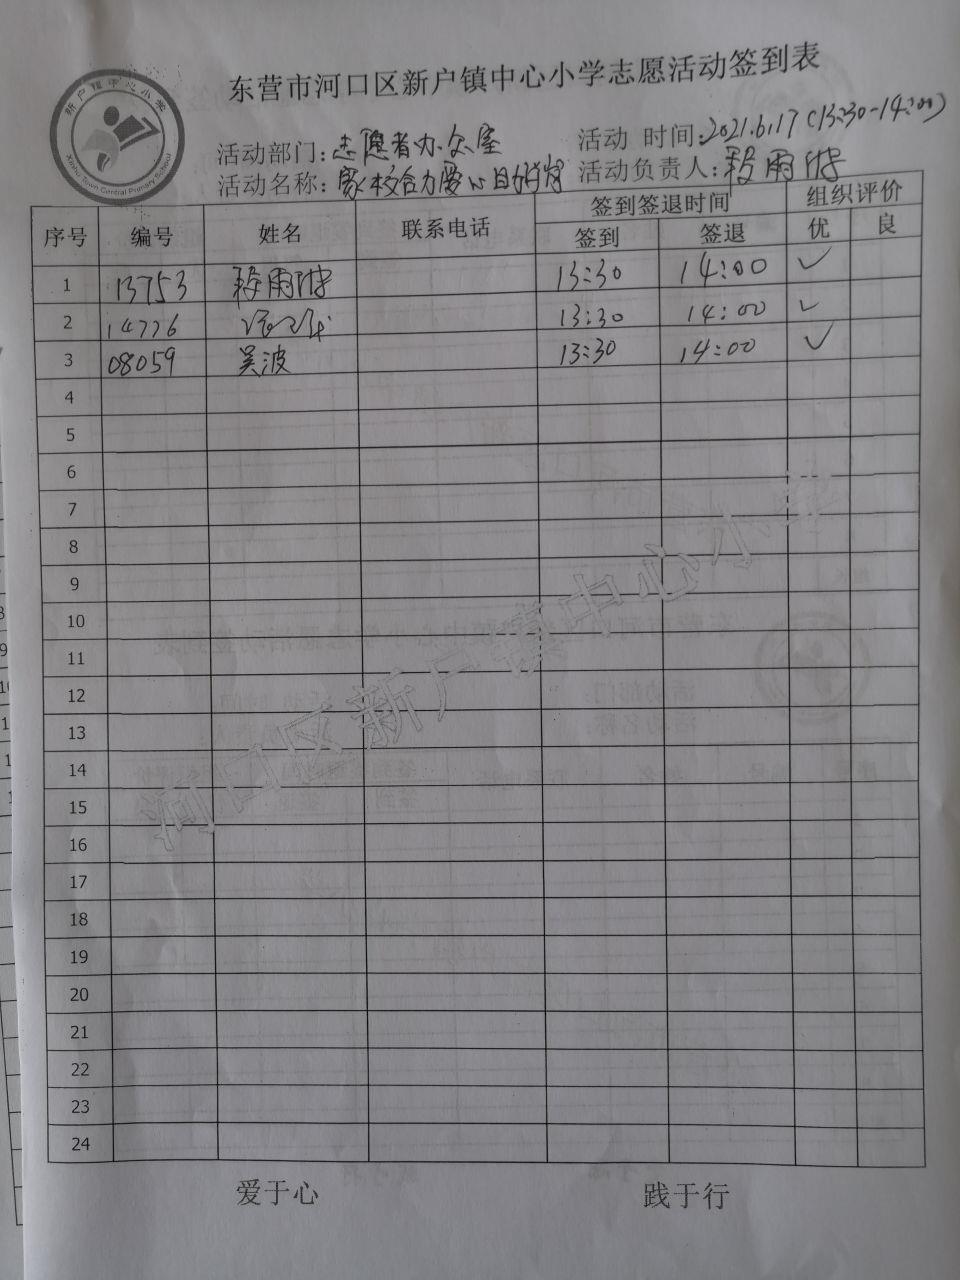 东营市河口区新户镇中心小学志愿活动签到表
新户镇中心小学
Xinhu Town Central Primary School
活动部门:志愿者办公室 活动 时间:2021.6.17(13:30-14:00)
活动名称:家校合力爱心 活动负责人:
序号 编号 姓名 联系电话 签到签退时间 组织评价
签到 签退 优 良
1 13753 13:30 14:00 ✓
2 14776 13:30 14:00 ✓
3 08059 吴波 13:30 14:00 ✓
4
5
6
7
8
9
10
11
12
13
14
15
16
17
18
19
20
21
22
23
24
河口区新户镇中心小学
爱于心 践于行